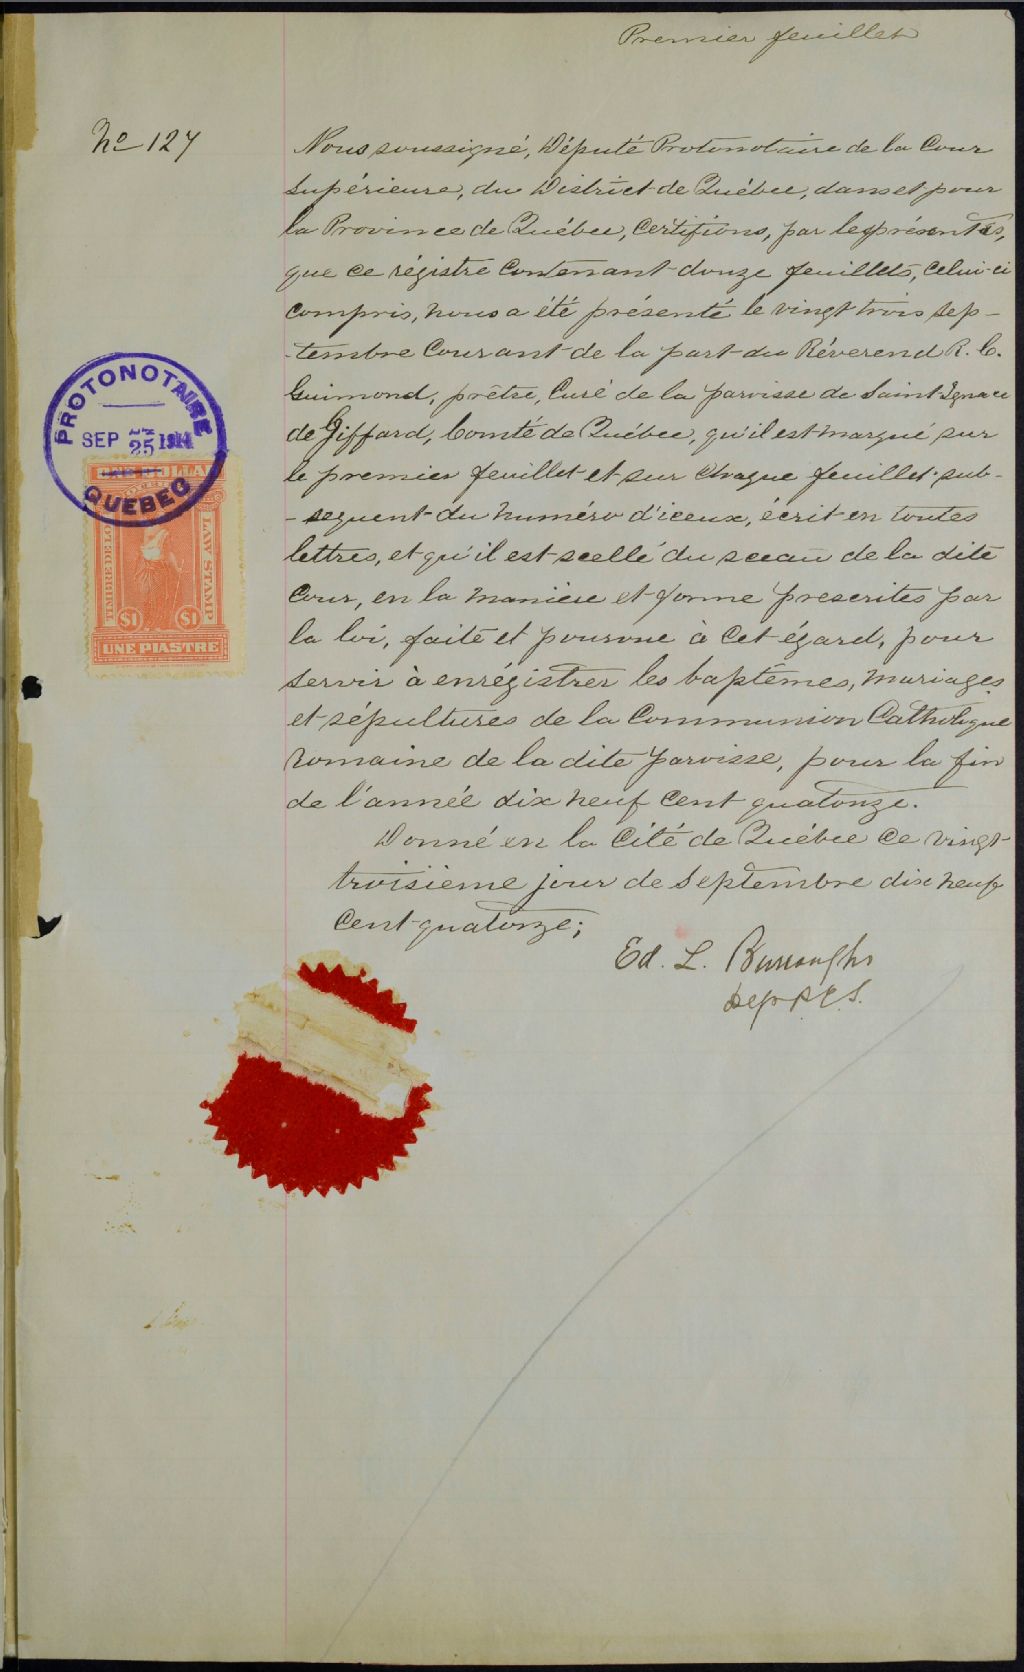 Premier feuillet
No 127
Nous soussigné, Député Protonotaire de la Cour
Supérieure, du District de Québec, dans et pour
la Province de Québec, certifions, par les présentes,
que ce régistre contenant douze feuillets, celui-ci
compris, nous a été présenté le vingt trois sep-
-tembre courant de la part du Réverend R. C.
Guimond, prêtre, Curé de la paroisse de Saint Ignace
de Giffard, Comté de Québec, qu'il est marqué sur
le premier feuillet et sur chaque feuillet sub-
-sequent du numéro d'iceux, écrit en toutes
lettres, et qu'il est scellé du sceau de la dite
Cour, en la manière et forme prescrites par
la loi, faite et pourvue à cet égard, pour
servir à enrégistrer les baptêmes, mariages
et sépultures de la Communion Catholique
romaine de la dite paroisse, pour la fin
de l'année dix neuf cent quatorze.
Donné en la Cité de Québec ce vingt
troisième jour de Septembre dix neuf
cent quatorze;
Ed. L. Burroughs
Dep P.C.S.
PROTONOTAIRE
SEP 25 1914
QUEBEC
ONE DOLLAR
TIMBRE DE LO
LAW STAMP
$1 $1
UNE PIASTRE